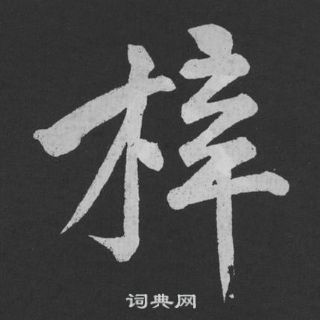 梓
词典网